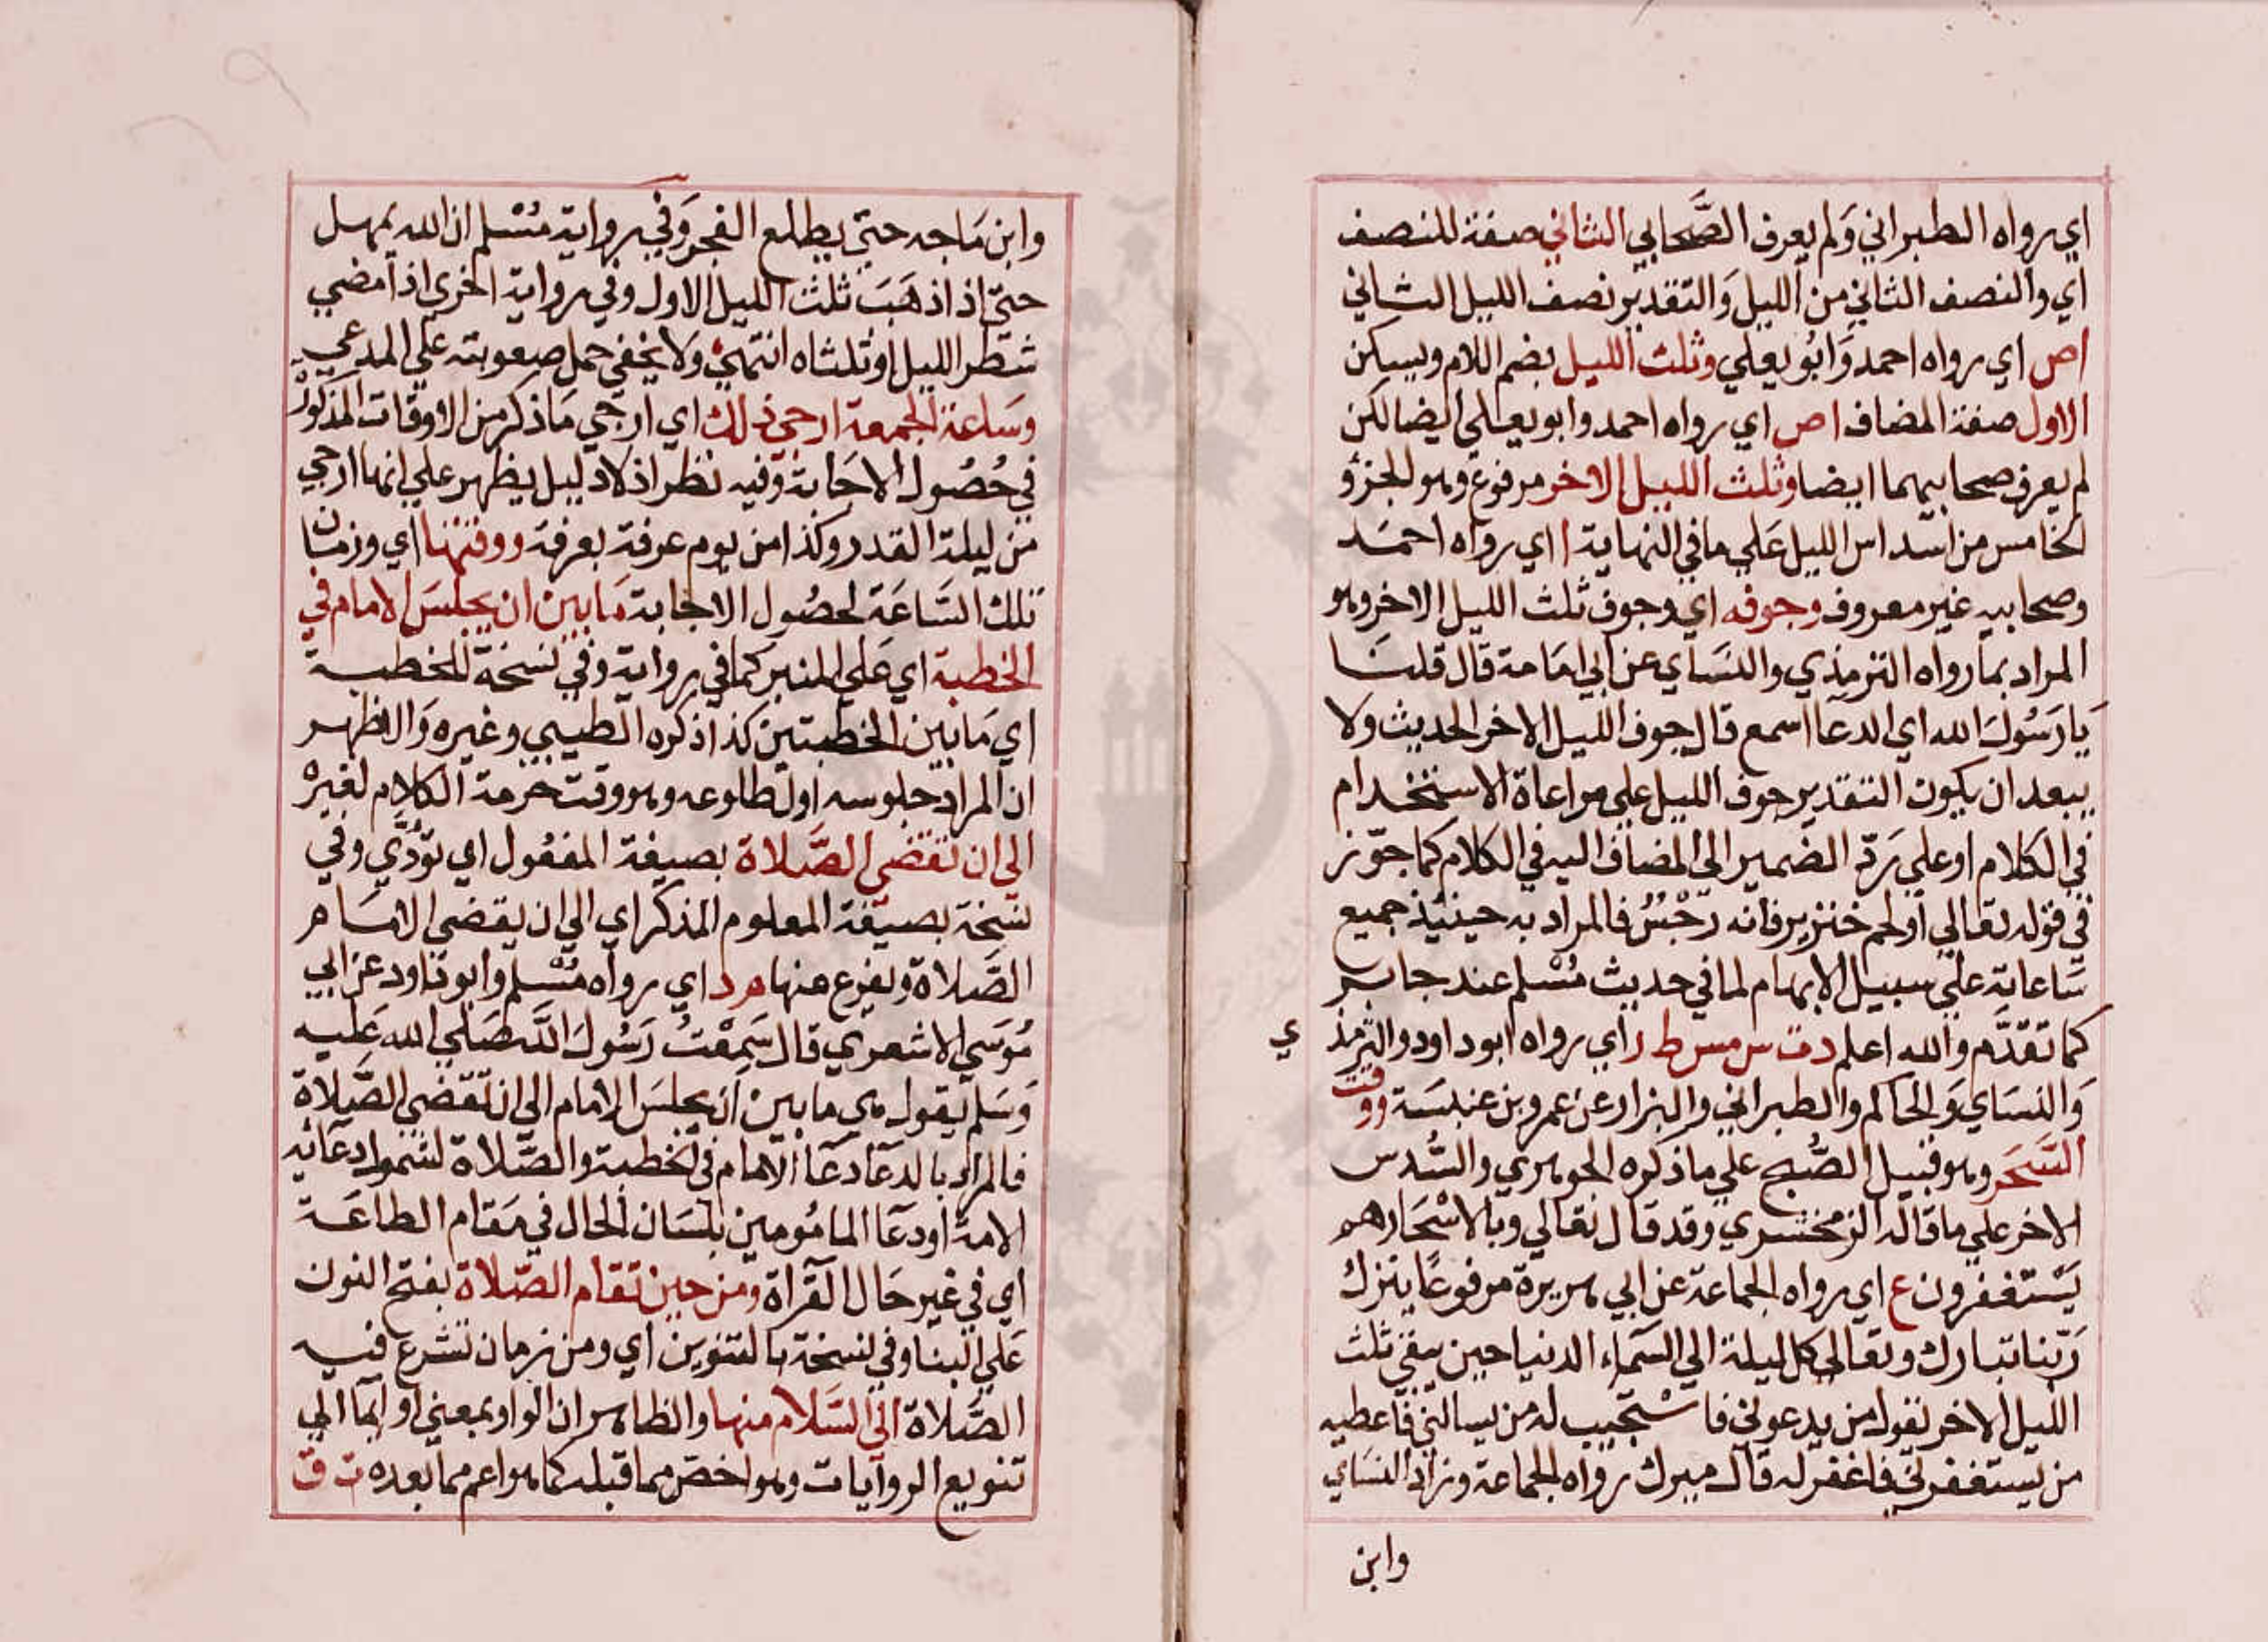 اي رواه الطبراني وَلم يعرف الصَّحابي الثاني صفة للنصف
اي والنصف الثاني من الليل وَالتقدير نصف الليل الثاني
اص اي رواه احمد وَابُو يعلي وثلث الليل بضم اللام ويسكن
الاول صفة المضاف اص اي رواه احمد وابو يعلي ايضا لكن
لم يعرف صحابيهما ايضا وثلث الليل الاخر مرفوع وهو الجزؤ
الخامس من اسداس الليل عَلي ما في النهاية ا اي رواه احمَد
وصحابيه غير معروف وجوفه اي وجوف ثلث الليل الاخر وهو
المراد بما رواه الترمذي والنسَاي عن ابي امَامة قال قلنَا
يَا رَسُولَ الله اي الدعا اسمع قال جوف الليل الاخر الحديث ولا
يبعد ان يكون التقدير جوف الليل علي مراعاة الاستخدام
في الكلام او علي رَدّ الضمير الي المضاف اليه في الكلام كما جوّز
في قوله تعالي او لحم خنزير فانه رجْسُ فالمراد به حينئذ جميع
سَاعاته علي سبيل الابهام لما في حديث مُسْلم عند جابر
كما تقدَّم والله اعلم دت س مس ط ر اي رواه ابو داود والترمذ ي
وَالنسَاي وَالحاكم والطبراني والبزار عن عمرو بن عنبسَة ووقت
السَّحَر وهو قبيل الصُّبح علي ما ذكره الجوهري والسُّدس
الاخر علي ما قاله الزمخشري وقد قال تعالي وبالاسْحَار هم
يَسْتغفرون ع اي رواه الجماعة عن ابي هريرة مرفوعًا ينزل
رَبّنا تبارك وتعالي كل ليلة الي السَّماء الدنيا حين يبقي ثلث
الليل الاخر يقول من يدعوني فاسْتجيب له من يسالني فاعطيه
من يستغفرني فاغفر له قال ميرك رواه الجماعة وزاد النسَاي
وابن
وابن مَاجه حتي يطلع الفجر وَفي رواية مُسْلم ان الله يمهل
حتيّ اذا ذهَبَ ثلث الليل الاول وفي رواية اخري اذا مضي
شطر الليل او ثلثاه انتهيْ وَلا يخفي حمل صعوبته علي المدعي
وَساعة الجمعة ارجي ذلك اي ارجي مَا ذكر من الاوقات المذكورْ
في حُصُول الاجَابة وَفيه نظر اذ لا دليل يظهر علي انها ارجي
من ليلة القدر وكذا من يوم عرفة بعرفة ووقتها اي وزمان
تلك السَّاعَة لحصُول الاجابة مَا بين ان يجلسَ الامام في
الخطبة اي عَلي المنبر كما في رواية وفي نسخة للخطبة
اي مَا بين الخطبتين كذا ذكره الطيبي وغيره وَالاظهر
ان المراد جلوسه اول طلوعه وهو وقت حرمة الكلام لغيرْ
الي ان تقضي الصَّلاة بصيغة المفعُول اي تؤدَّي وفي
نسخة بصيغة المعلوم المذكر اي الي ان يقضي الامَام
الصَّلاة ويفرغ منها م د اي رواه مُسْلم وابو داود عن ابي
مُوسَي الاشعري قال سَمِعْتُ رَسُولَ اللَّه صَلي الله عَليه
وَسَلم يَقول هي ما بين ان يجلسَ الامام الي ان تقضي الصَّلاة
فالمراد بالدعَآ دعَآ الامام في الخطبة والصَّلاة لشمول دعَائه
الامة او دعَآ المامُومين بلسَان الحال في مَقام الطاعَة
اي في غير حَال القرآة ومن حين تقام الصَّلاة بفتح النون
عَلي البنا وفي نسخة بالتنوين اي ومن زمان تشرع فيه
الصَّلاة الي السَّلام منها والظاهر ان الواو بمعني او ايما الي
تنويع الروايات وهو اخصّ مما قبله كما هو اعم مما بعده ت ق